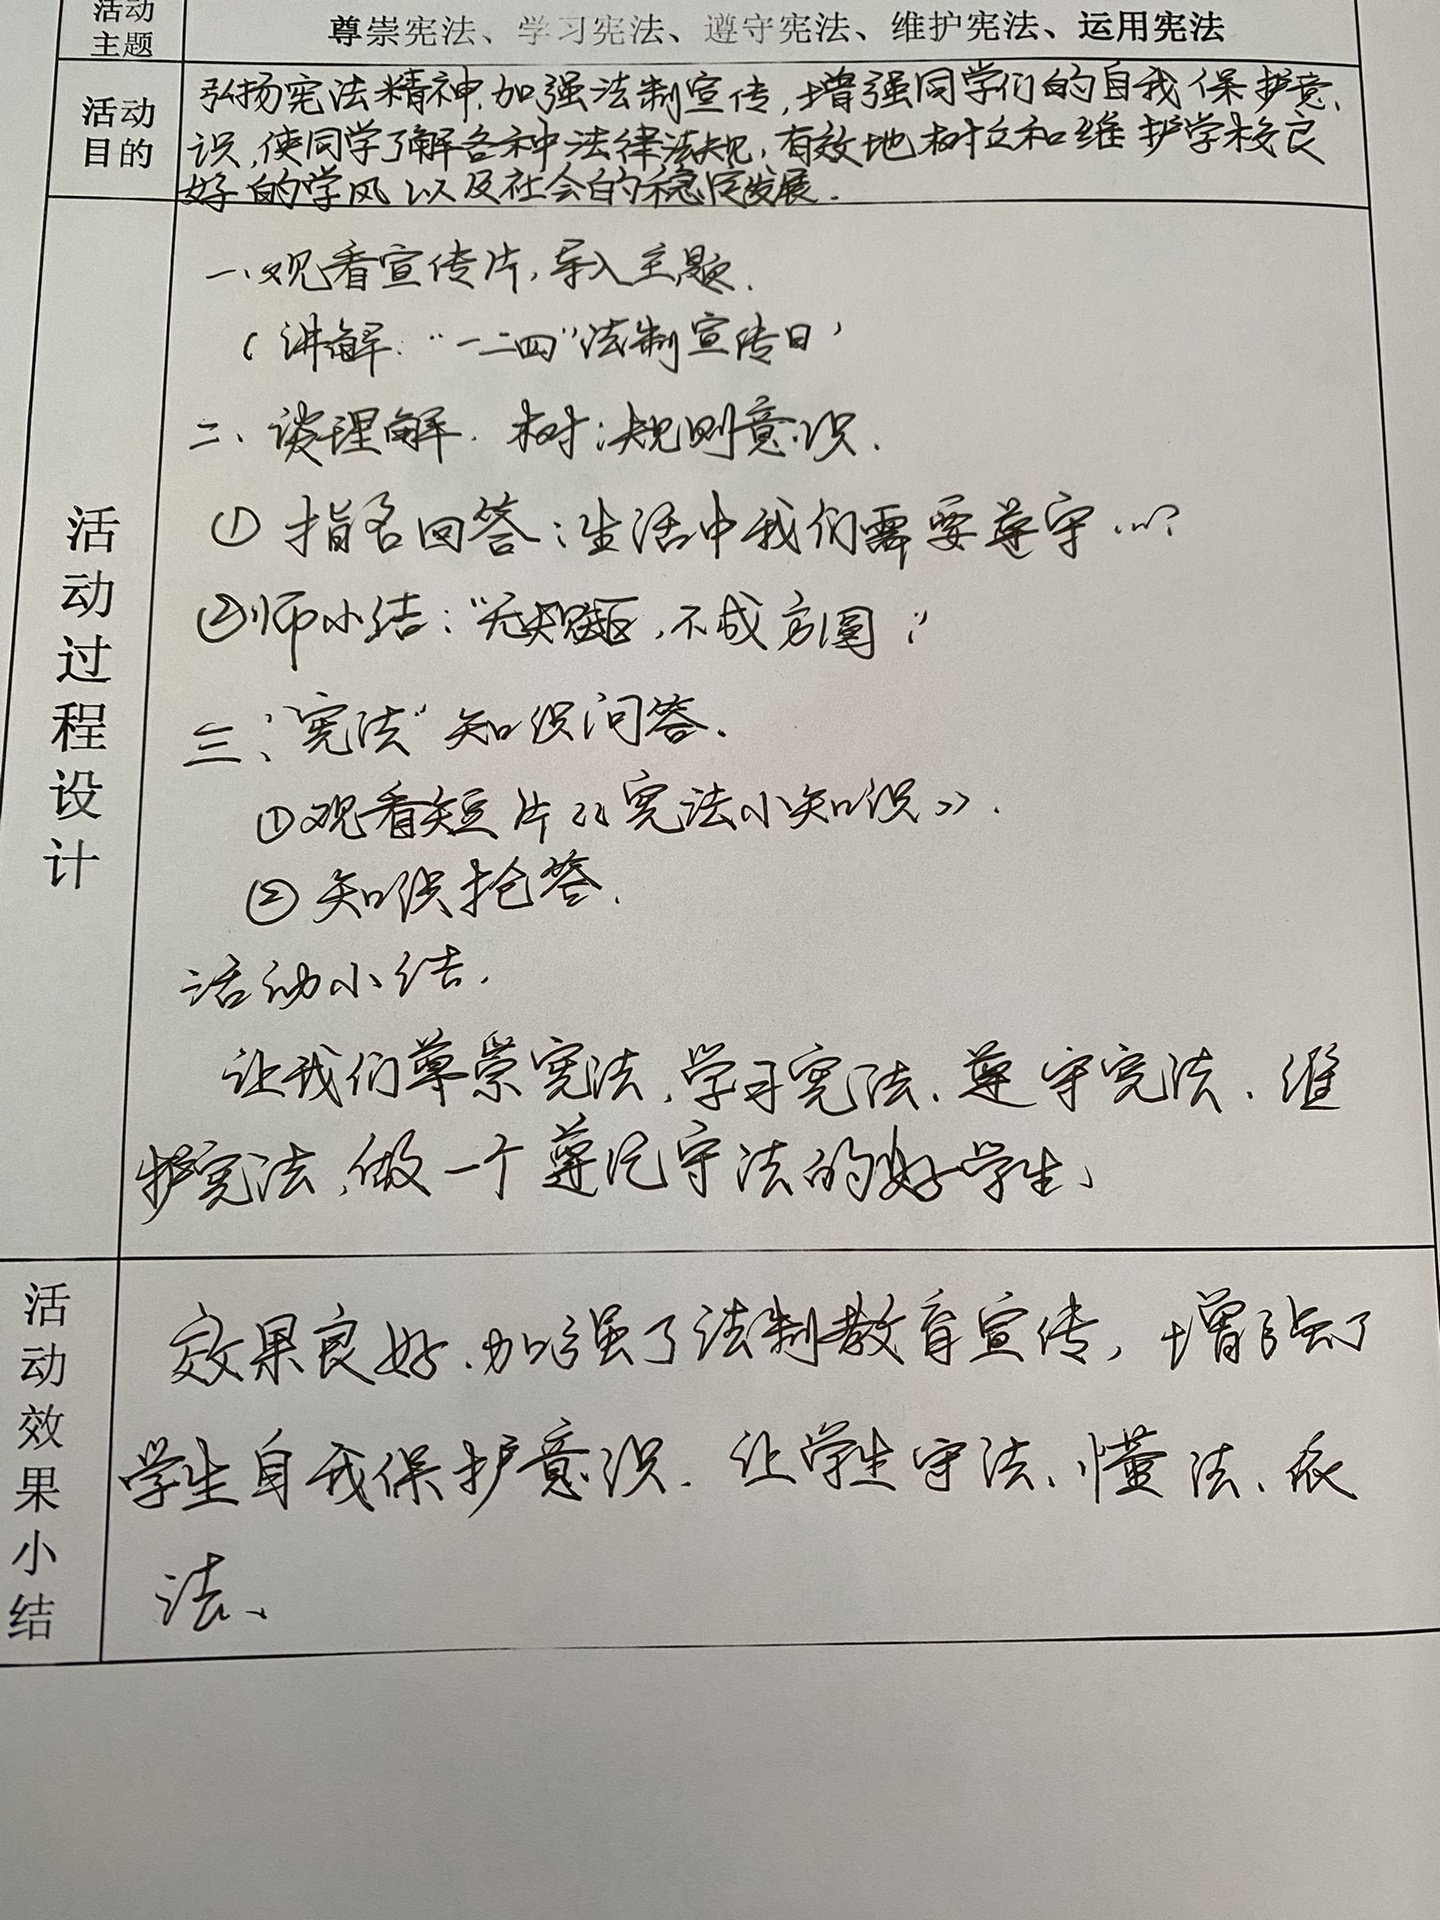 活动
主题
尊崇宪法、学习宪法、遵守宪法、维护宪法、运用宪法
活动
目的
弘扬宪法精神,加强法制宣传,增强同学们的自我保护意
识,使同学了解各种法律法规,有效地树立和维护学校良
好的学风以及社会的稳定发展.
活动过程设计
一、观看宣传片,导入主题.
(讲解:“一二四”法制宣传日)
二、谈理解.树规则意识.
①指名回答:生活中我们需要遵守…?
②师小结:“无规矩,不成方圆”
三、“宪法”知识问答.
①观看短片《宪法小知识》.
②知识抢答.
活动小结.
让我们尊崇宪法,学习宪法、遵守宪法、维
护宪法,做一个遵纪守法的好学生、
活动效果小结
效果良好、加强了法制教育宣传,增强了
学生自我保护意识.让学生守法、懂法、依
法、